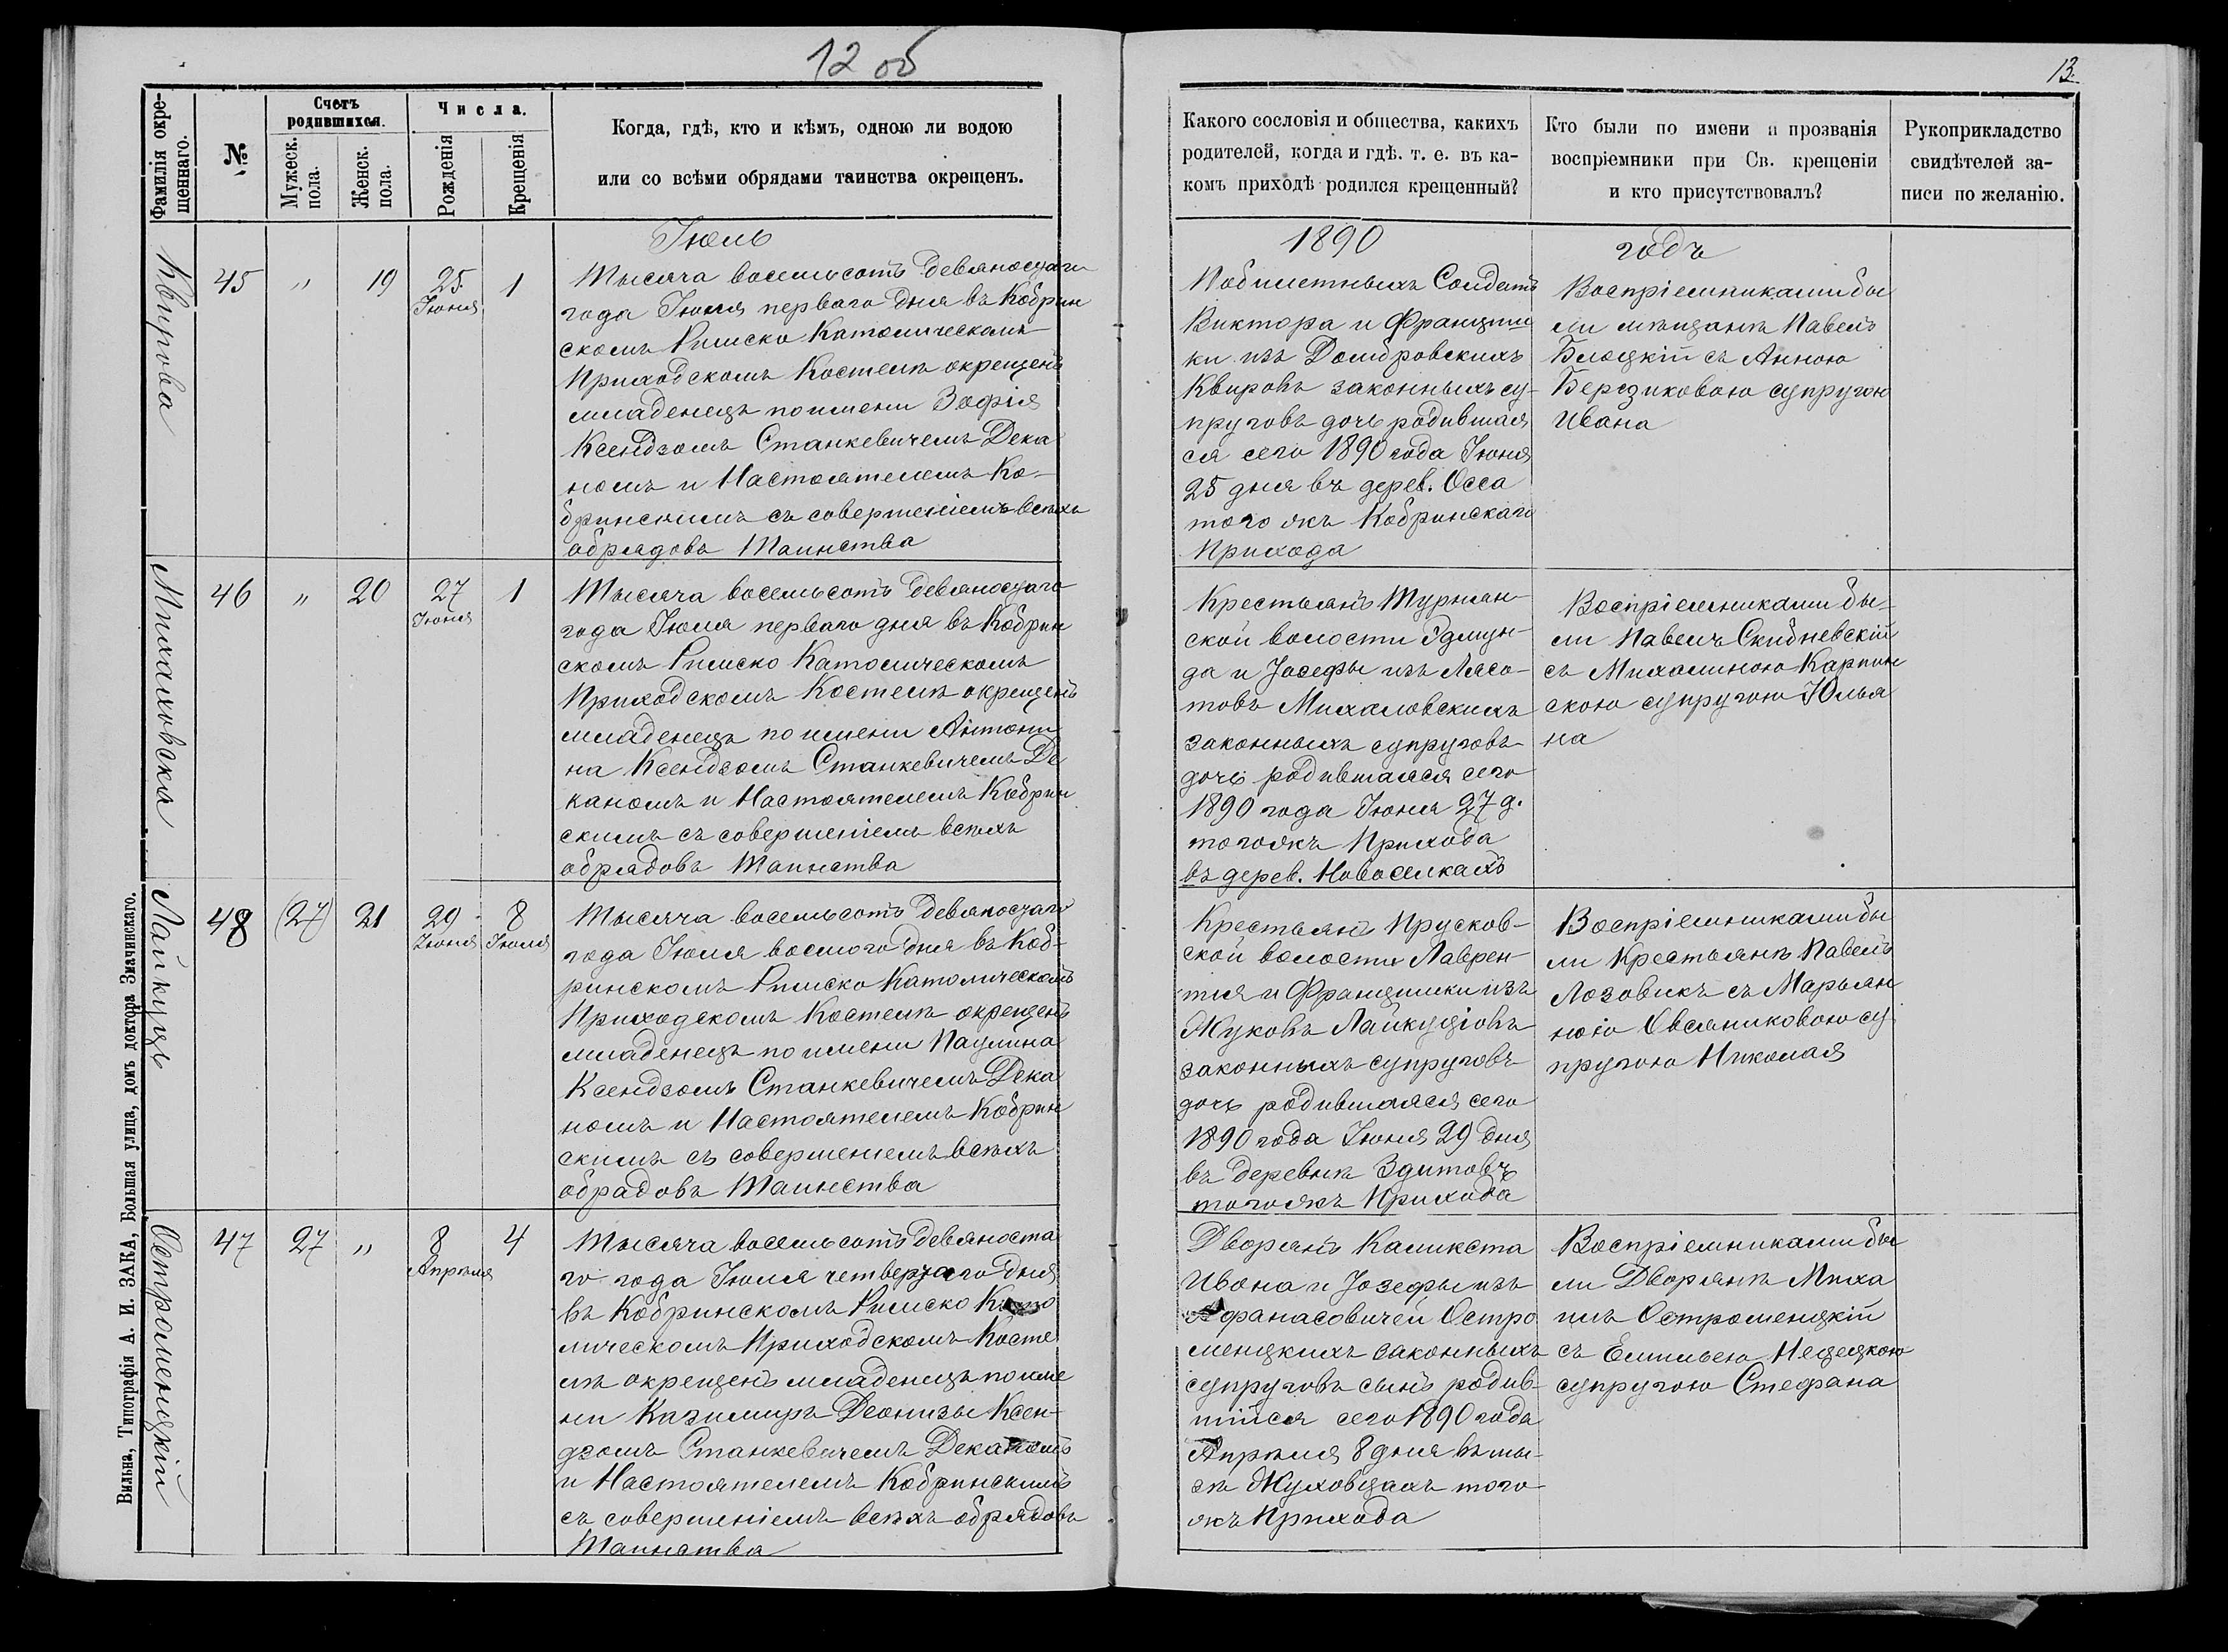 12 об
13.
Фамилія окре-
щеннаго.
№
Счетъ
родившихся.
Мужеск.
пола.
Женск.
пола.
Числа.
Рожденія
Крещенія
Когда, гдѣ, кто и кѣмъ, одною ли водою
или со всѣми обрядами таинства окрещенъ.
Какого сословія и общества, какихъ
родителей, когда и гдѣ. т. е. въ ка-
комъ приходѣ родился крещенный?
Кто были по имени и прозванія
воспріемники при Св. крещеніи
и кто присутствовалъ?
Рукоприкладство
свидѣтелей за-
писи по желанію.
Іюль
1890
годъ
Квирова
45
"
19
25
Іюня
1
Тысяча восемьсотъ девяностаго
года Іюля перваго дня въ Кобрин
скомъ Римско Католическомъ
Приходскомъ Костелѣ окрещенъ
младенецъ по имени Зофія
Ксендзомъ Станкевичемъ Дека
номъ и Настоятелемъ Ко-
бринскимъ съ совершеніемъ всѣхъ
обрядовъ Таинства
Побилетныхъ Солдатъ
Виктора и Францишки
ки изъ Домбровскихъ
Квировъ законныхъ су-
пруговъ дочь родившая
ся сего 1890 года Іюня
25 дня въ дерев. Осса
того жъ Кобринскаго
Прихода
Воспріемниками бы
ли мѣщанъ Павелъ
Блоцкій съ Анною
Березиковою супругою
Ивана
Михаловска
46
"
20
27
Іюня
1
Тысяча восемьсотъ девяностаго
года Іюля перваго дня въ Кобрин
скомъ Римско Католическомъ
Приходскомъ Костелѣ окрещенъ
младенецъ по имени Антони
на Ксендзомъ Станкевичемъ Де
каномъ и Настоятелемъ Кобрин
скимъ съ совершеніемъ всѣхъ
обрядовъ Таинства
Крестьянъ Турнян-
ской волости Эдмун-
да и Іосефы изъ Лясо-
товъ Михаловскихъ
законныхъ супруговъ
дочь родившаяся сего
1890 года Іюня 27 д.
тогожъ Прихода
въ дерев. Новоселкахъ
Воспріемниками бы-
ли Павелъ Скибневскій
съ Михалиною Карпин
скою супругою Юлья
на
Лайкуць
48
(27)
21
29
Іюня
8
Іюля
Тысяча восемьсотъ девяностаго
года Іюля восмого дня въ Коб-
ринскомъ Римско Католическомъ
Приходскомъ Костелѣ окрещенъ
младенецъ по имени Паулина
Ксендзомъ Станкевичемъ Дека
номъ и Настоятелемъ Кобрин
скимъ съ совершеніемъ всѣхъ
обрадовъ Таинства
Крестьянъ Прусков-
ской волости Лаврен-
тія и Францишки изъ
Жуковъ Лайкуціовъ
законныхъ супруговъ
дочь родившаяся сего
1890 года Іюня 29 дня
въ деревнѣ Здитовъ
тогожъ Прихода
Воспріемниками бы
ли Крестьянъ Павелъ
Лозовикъ съ Марьян
ною Овсяниковою су
пругою Николая
Остроменцкій
47
27
"
8
Апрѣля
4
Тысяча восемьсотъ девяноста
го года Іюля четвертаго дня
въ Кобринскомъ Римско Като
лическомъ Приходскомъ Косте
лѣ окрещенъ младенецъ по име
ни Казимиръ Деонизы Ксен-
дзомъ Станкевичемъ Деканомъ
и Настоятелемъ Кобринскимъ
съ совершеніемъ всѣхъ обрядовъ
Таинства
Дворянъ Каликста
Ивона и Іозефы изъ
Афанасовичей Остро
менцкихъ законныхъ
супруговъ сынъ родив-
шійся сего 1890 года
Апрѣля 8 дня въ мы-
зѣ Жуховцахъ того
жъ Прихода
Воспріемниками бы
ли Дворянъ Миха
илъ Остроменцкій
съ Емильею Нецецкою
супругою Стефана
Вильна, Типографія А. И. ЗАКА, Большая улица, домъ доктора Значинскаго.